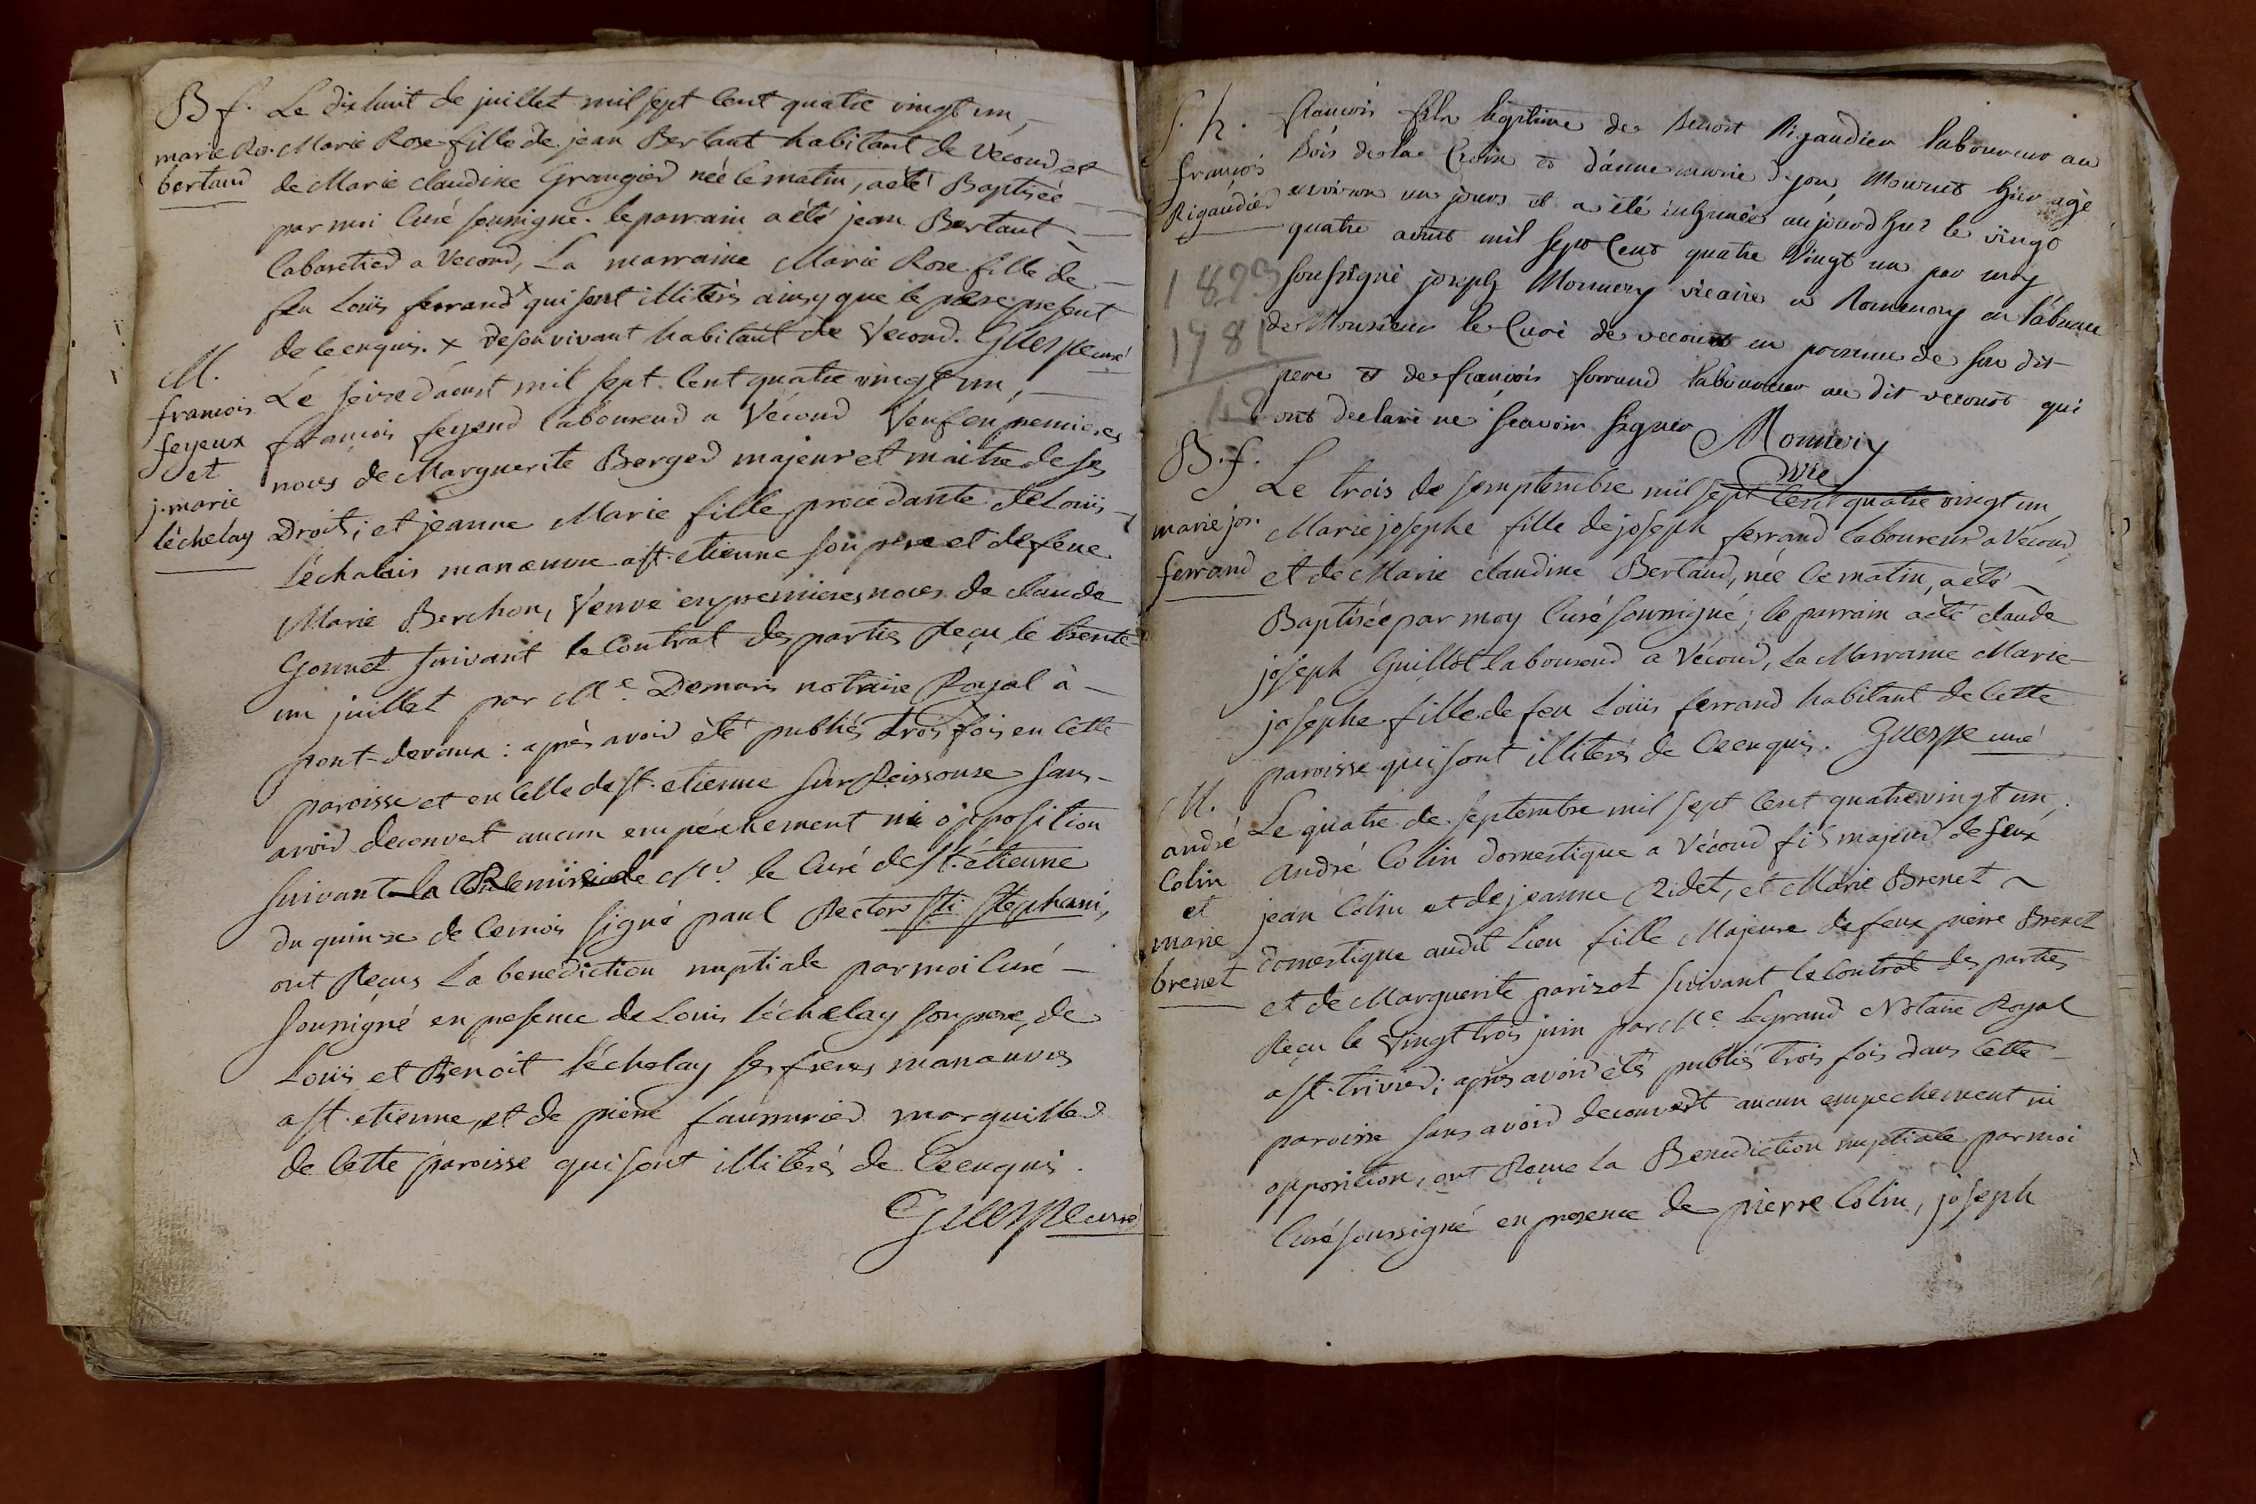 B f. Le dixhuit de juillet mil sept cent quatre vingt un,
marie Ro. Marie Rose fille de jean Bertaut habitant de Vecourd et
bertaud de Marie claudine Grangier née le matin, a été Baptisée
par moi Curé soussigné. le parrain a été jean Bertaut
Cabaretier a Vecourd, La marraine Marie Rose fille de
feu Louis ferrand x qui sont illiterés ainsy que le pere present
de ce enquis. x de son vivant habitant de Vecourd. Guerpe curé
M.
francois
feyeux
et
j. marie
léchelay
Le seize d'aoust mil sept cent quatre vingt un,
françois feyeud laboureur a Vécourd Veuf en premieres
noces de Marguerite Berger majeur et maitre de ses
Droits; et jeanne Marie fille procedante de Louis
Léchalais manoeuvre a st. etienne son pere et de feue
Marie Berchon, Veuve en premieres noces de claude
Gonnet suivant le Contrat des parties Reçu le trente
un juillet par Me. Demaris notaire Royal à
pont-devaux: après avoir été publiés trois fois en cette
paroisse et en celle de st. etienne sur Reissouze sans
avoir decouvert aucun empéchement ni opposition
suivant la Remise de Mr. le Curé de St. étienne
du quinze de ce mois signé paul Rector Sti Stephani,
ont Reçus La benediction nuptiale par moi Curé
soussigné en presence de Louis léchelay son pere, de
Louis et Benoit léchelay ses freres manoeuvres
a st. etienne, et de pierre faussurier marguiller
de cette paroisse qui sont illiterés de ce enquis.
Guerpe curé
S. h.
françois
Rigaudier
1823
1781
42
françois fils legitime de Benoit Rigaudier laboureur au
bois de la Croix et d'anne marie Dejou mourut hier agé
environ un jours et a été inhumée aujourd'hui le vingt
quatre aoust mil sept Cent quatre Vingt un par moy
soussigné joseph Monnery vicaire a Romenay en l'absence
de Monsieur le Curé de vecourt en presence de son dit
pere et de françois ferrand laboureur au dit vecourt qui
ont declaré ne scavoir signer Monnery
vic
B. f.
marie jos.
ferrand
Le trois de semptembre mil sept Cent quatre vingt un,
Marie josephe fille de joseph ferrand laboureur a Vécour,
et de Marie claudine Bertaud, née le matin, a été
Baptisée par moy Curé soussigné; le parrain a été claude
joseph Guillot laboureur a Vécour, la Marraine Marie
josephe fille de feu Louis ferrand habitant de cette
paroisse qui sont illiterés de Ce enquis. Guerpe curé
M.
andré
Colin
et
marie
brenet
Le quatre de septembre mil sept Cent quatre vingt un,
André Colin domestique a Vécourd fils majeur de feux
jean Colin et de jeanne Ridet, et Marie Brenet
domestique audit Lieu fille Majeure de feux pierre Brenet
et de Marguerite parizot suivant le Contrat des parties
Reçu le Vingt trois juin par Me. Legrand Notaire Royal
a St. trivier; après avoir étés publiés trois fois dans Cette
paroisse sans avoir decouvert aucun empechement ni
opposition, ont Reçue La Benediction nuptiale par moi
Curé soussigné en presence de pierre Colin, joseph